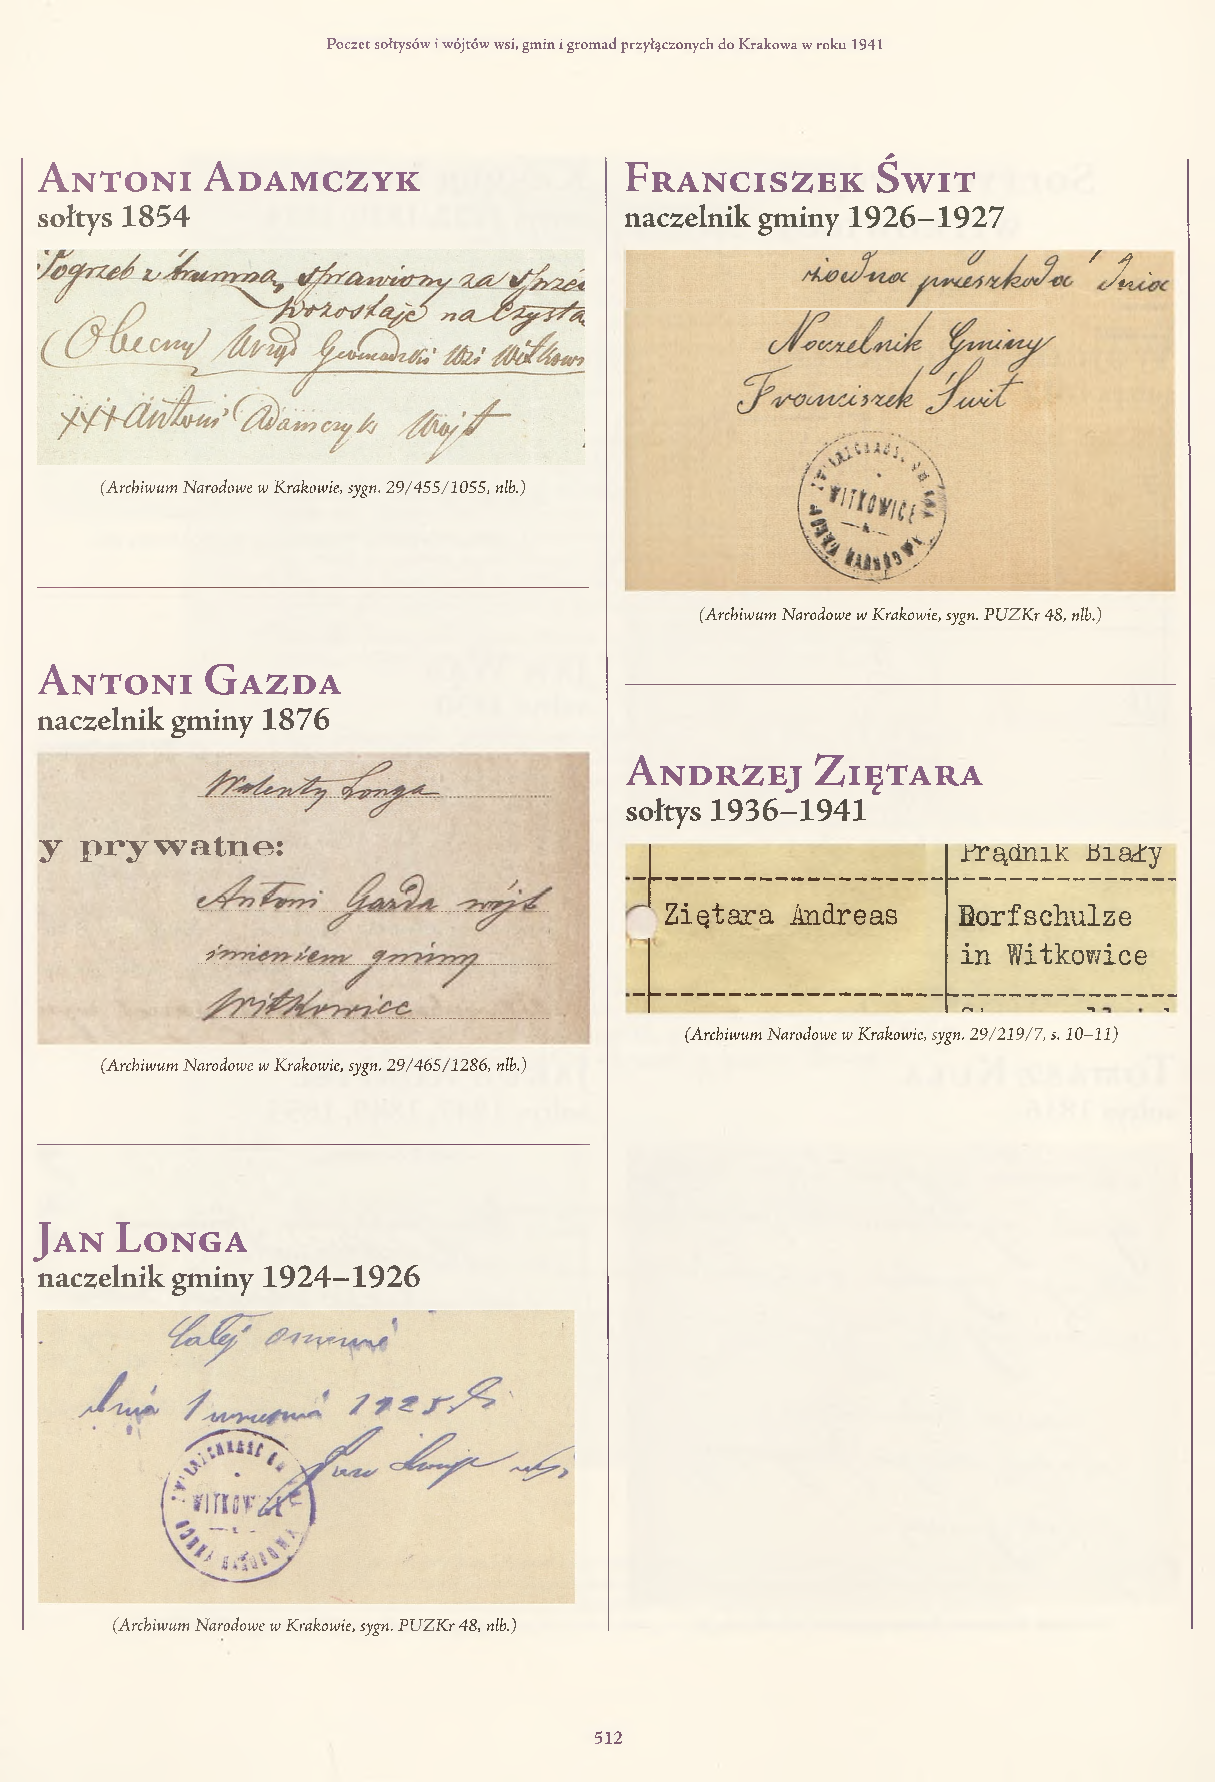 Poczet sołtysów i wójtów wsi, gmin i gromad przyłączonych do Krakowa w roku 1941
Antoni Adamczyk
sołtys 1854
Pogrzeb z trumną, sprawiony za
pozostaje na
Obecny Urząd Gromadzki Wsi
XXX Antoni Adamczyk Wójt
(Archiwum Narodowe w Krakowie, sygn. 29/455/1055, nlb.)
Antoni Gazda
naczelnik gminy 1876
Walenty Longa
y prywatne:
Antoni Gazda wójt
imieniem gminy
Witkowice
(Archiwum Narodowe w Krakowie, sygn. 29/465/1286, nlb.)
Jan Longa
naczelnik gminy 1924–1926
dnia 1 września 1925 r
WITKOWICE
(Archiwum Narodowe w Krakowie, sygn. PUZKr 48, nlb.)
Franciszek Świt
naczelnik gminy 1926–1927
żadna przeszkoda dnia
Naczelnik Gminy
Franciszek Świt
WITKOWICE
(Archiwum Narodowe w Krakowie, sygn. PUZKr 48, nlb.)
Andrzej Ziętara
sołtys 1936–1941
Prądnik Biały
Ziętara Andreas
Dorfschulze
in Witkowice
(Archiwum Narodowe w Krakowie, sygn. 29/219/7, s. 10–11)
512